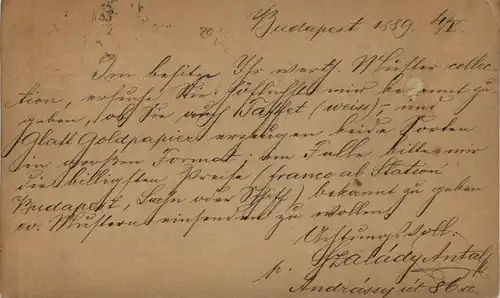 Budapest 1889. 4/V
Im besitze Ihr werth. Muster collec-
tion, ersuche Sie höflichst mir bekannt zu
geben, ob Sie auch Taffet (weiss) und
Glatt Goldpapier erzeugen beide Sorten
in großen Format: im Falle bitte mir
die billigsten Preise (franco ab Station
Budapest, oder Schiff) bekannt zu geben
ev. Mustern einsenden zu wollen.
Achtungsvoll.
Szalády Antal
p.
Andrássy út 86 sz.